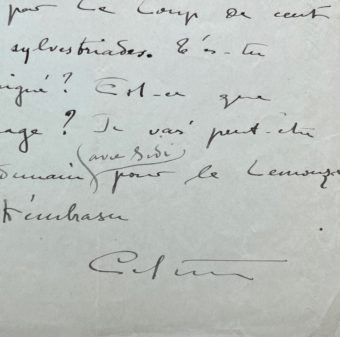 par le Loup de cent
sylvestriades. T'es-tu
igné? Est-ce que
age? Je vais peut-être
(avec Sidi)
demain pour le Limous
t'embrasse
Colette